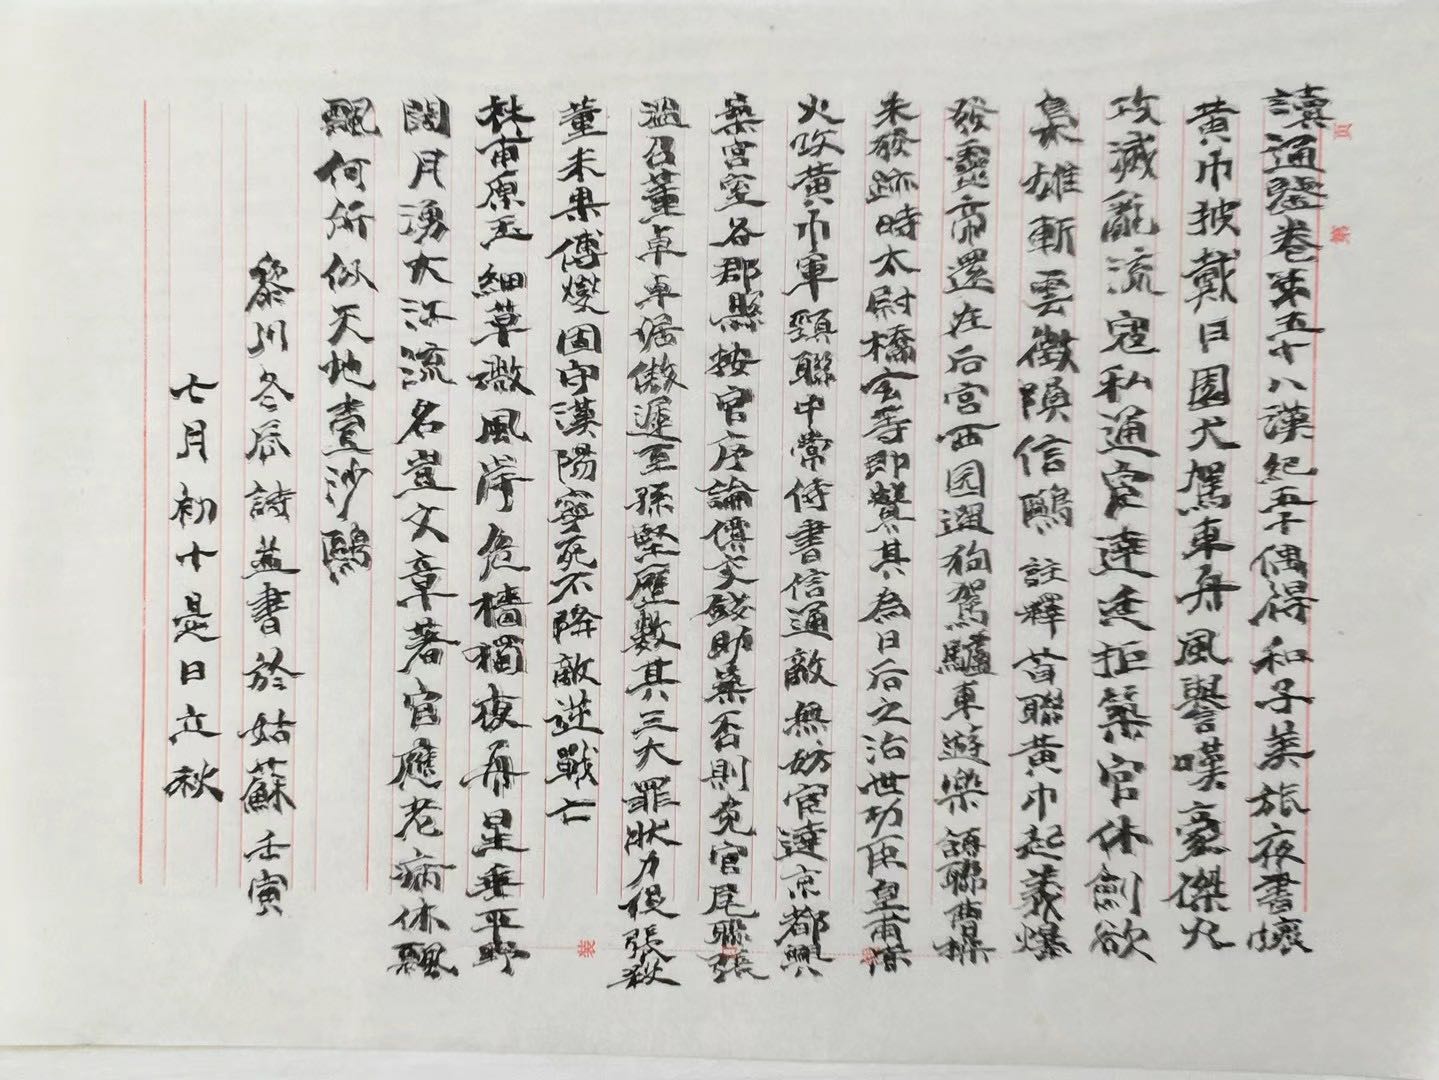 讀通鑒卷第五十八漢紀五十偶得和子美旅夜書懷
黃巾披戴日園犬駕東舟風譽嘆豪傑火
攻滅亂流寇私通宦達廷拒築官休劍欲
梟雄斬雲微隕信鷗註釋首聯黃巾起義爆
發靈帝還在后宮西园遛狗駕驢車遊樂語聯曹操
未發跡時太尉橋玄等即贊其為日后之治世功臣皇甫嵩
火攻黃巾軍頸聯中常侍書信通敵無妨宦達京都興
築宮室各郡縣按官序論價交錢助築否則免官尾聯張
溫召董卓卓倨傲遲至孫堅歷數其三大罪狀力促張殺
董未果傅燮固守漢陽寧死不降敵逆戰亡
杜甫原玉細草微風岸危檣獨夜舟星垂平野
闊月湧大江流名豈文章著官應老病休飄
飄何所似天地壹沙鷗
黎川冬辰詩並書於姑蘇壬寅
七月初十是日立秋
頁
裝